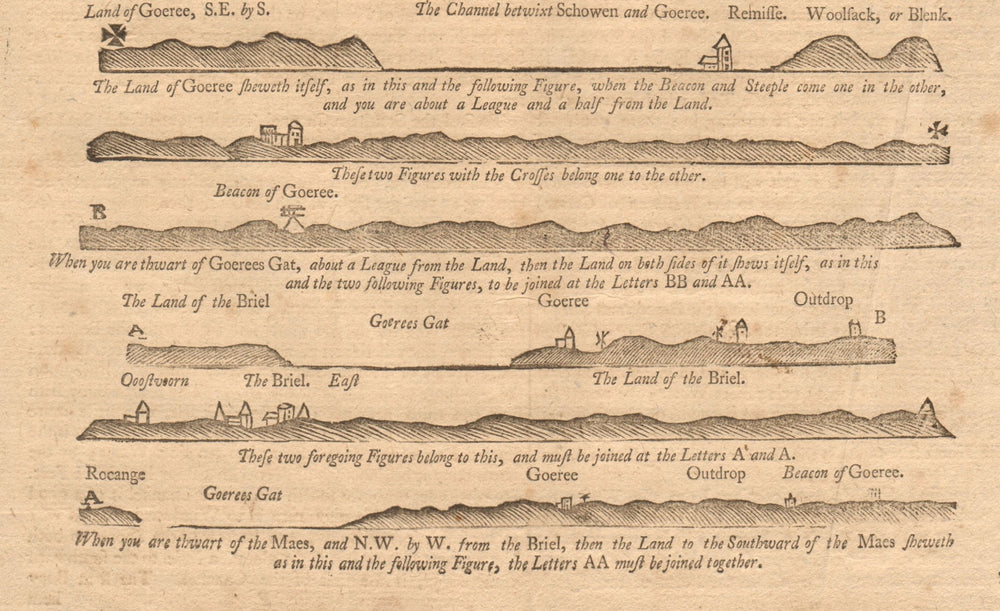 Land of Goeree, S.E. by S. The Channel betwixt Schowen and Goeree. Remiſſe. Woolſack, or Blenk.
The Land of Goeree ſheweth itſelf, as in this and the following Figure, when the Beacon and Steeple come one in the other,
and you are about a League and a half from the Land.
Theſe two Figures with the Croſſes belong one to the other.
Beacon of Goeree.
B
When you are thwart of Goerees Gat, about a League from the Land, then the Land on both ſides of it ſhews itſelf, as in this
and the two following Figures, to be joined at the Letters BB and AA.
The Land of the Briel Goeree Outdrop
A Goerees Gat B
Ooostvoorn The Briel. East The Land of the Briel.
Theſe two foregoing Figures belong to this, and muſt be joined at the Letters A and A.
Rocange Goeree Outdrop Beacon of Goeree.
A Goerees Gat
When you are thwart of the Maes, and N.W. by W. from the Briel, then the Land to the Southward of the Maes ſheweth
as in this and the following Figure, the Letters AA muſt be joined together.